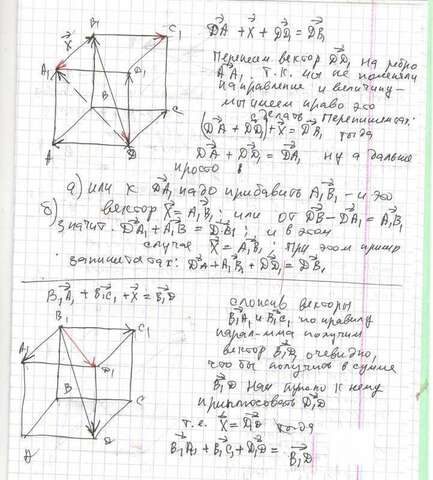 B₁ C₁
X⃗
A₁ D₁
B C
A D
DA⃗ + X⃗ + DD₁⃗ = DB₁⃗
Перенесем вектор DD₁⃗ на ребро
AA₁⃗. Т.к. мы не поменяли
направление и величину-
мы имеем право это
сделать. Перепишем так:
(DA⃗ + DD₁⃗) + X⃗ = DB₁⃗ тогда
DA⃗ + DD₁⃗ = DA₁⃗ ну а дальше
просто
а) или к DA₁⃗ надо прибавить A₁B₁⃗ - и это
б) вектор X⃗ = A₁B₁⃗; или от DB⃗ - DA₁⃗ = A₁B₁⃗
значит. DA₁⃗ + A₁B⃗ = D·B₁⃗; и в этом
случае X⃗ = A₁B₁⃗; При этом пример
запишется так: DA⃗ + A₁B₁⃗ + DD₁⃗ = DB₁⃗
B₁A₁⃗ + B₁C₁⃗ + X⃗ = B₁D⃗
B₁ C₁
A₁ D₁
B C
A D
сложив векторы
B₁A₁⃗ и B₁C₁⃗ по правилу
парал-мма получим
вектор B₁D₁⃗ очевидно,
что бы получить в сумме
B₁D⃗ нам нужно к нему
D₁D⃗
т.е. X⃗ = D₁D⃗ тогда
B₁A₁⃗ + B₁C₁⃗ + D₁D⃗ = B₁D⃗